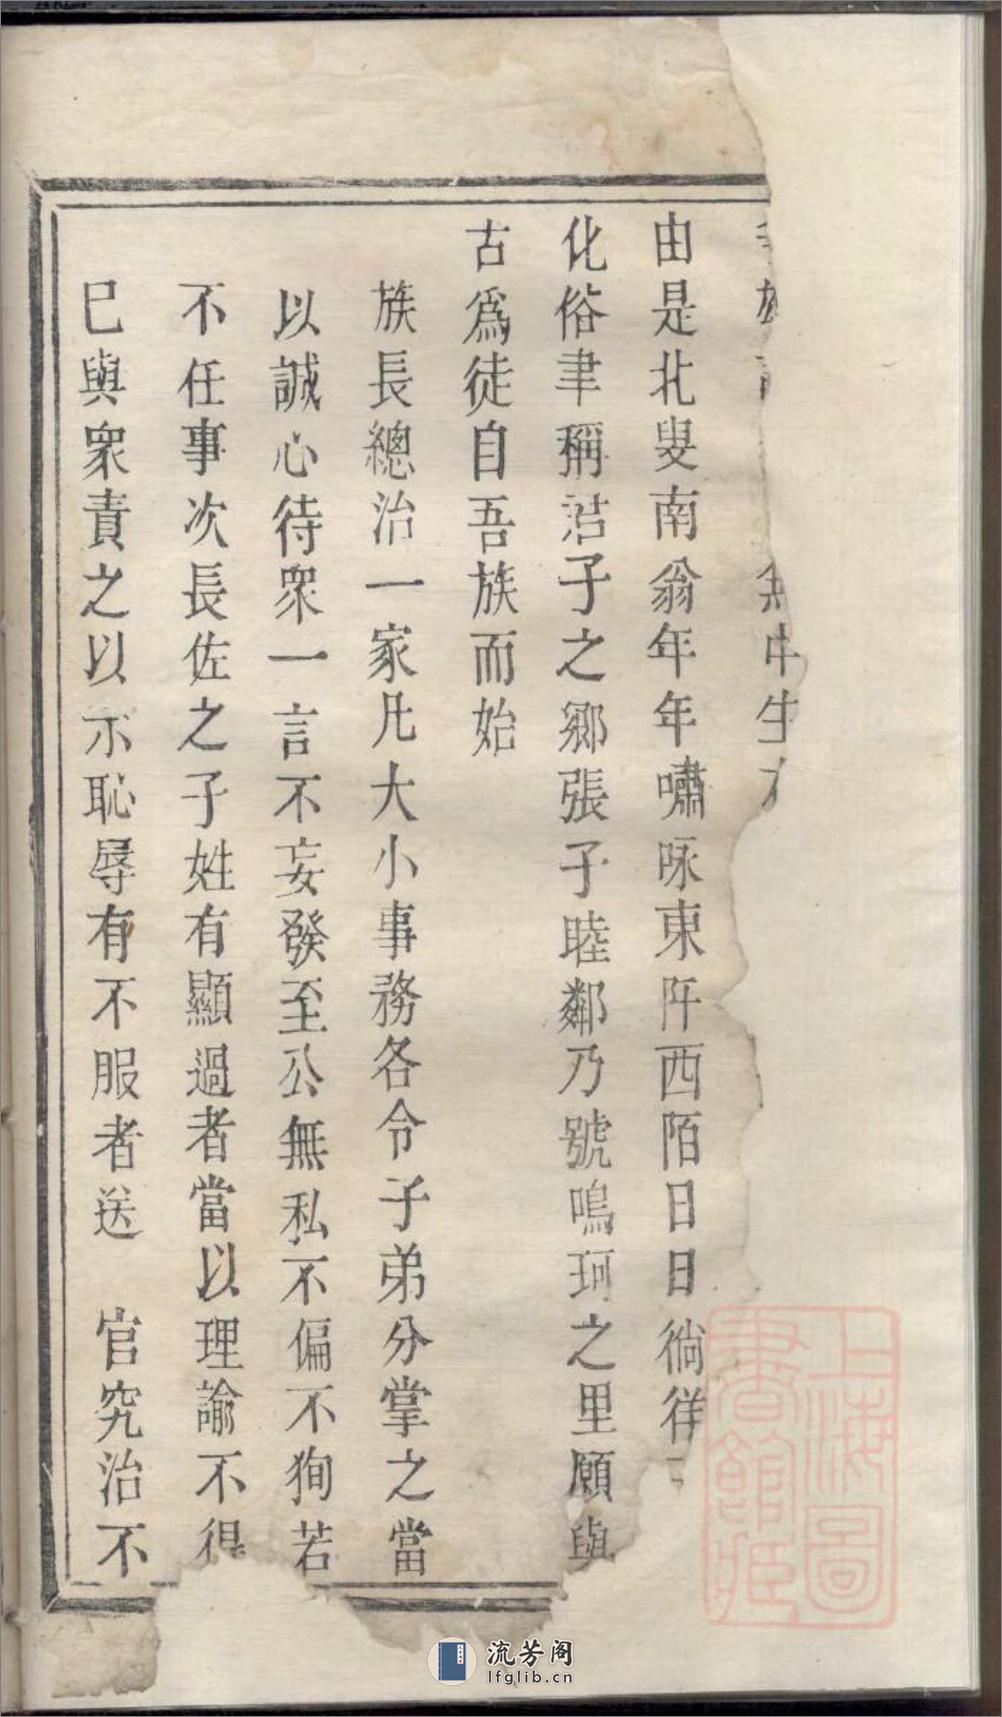 由是北叟南翁年年嘯咏東阡西陌日日徜徉
化俗聿稱君子之鄉張子睦鄰乃號鳴珂之里願與
古爲徒自吾族而始
族長總治一家凡大小事務各令子弟分掌之當
以誠心待衆一言不妄發至公無私不偏不狥若
不任事次長佐之子姓有顯過者當以理諭不得
已與衆責之以示恥辱有不服者送 官究治不
上海圖書館藏
流芳阁
lfglib.cn